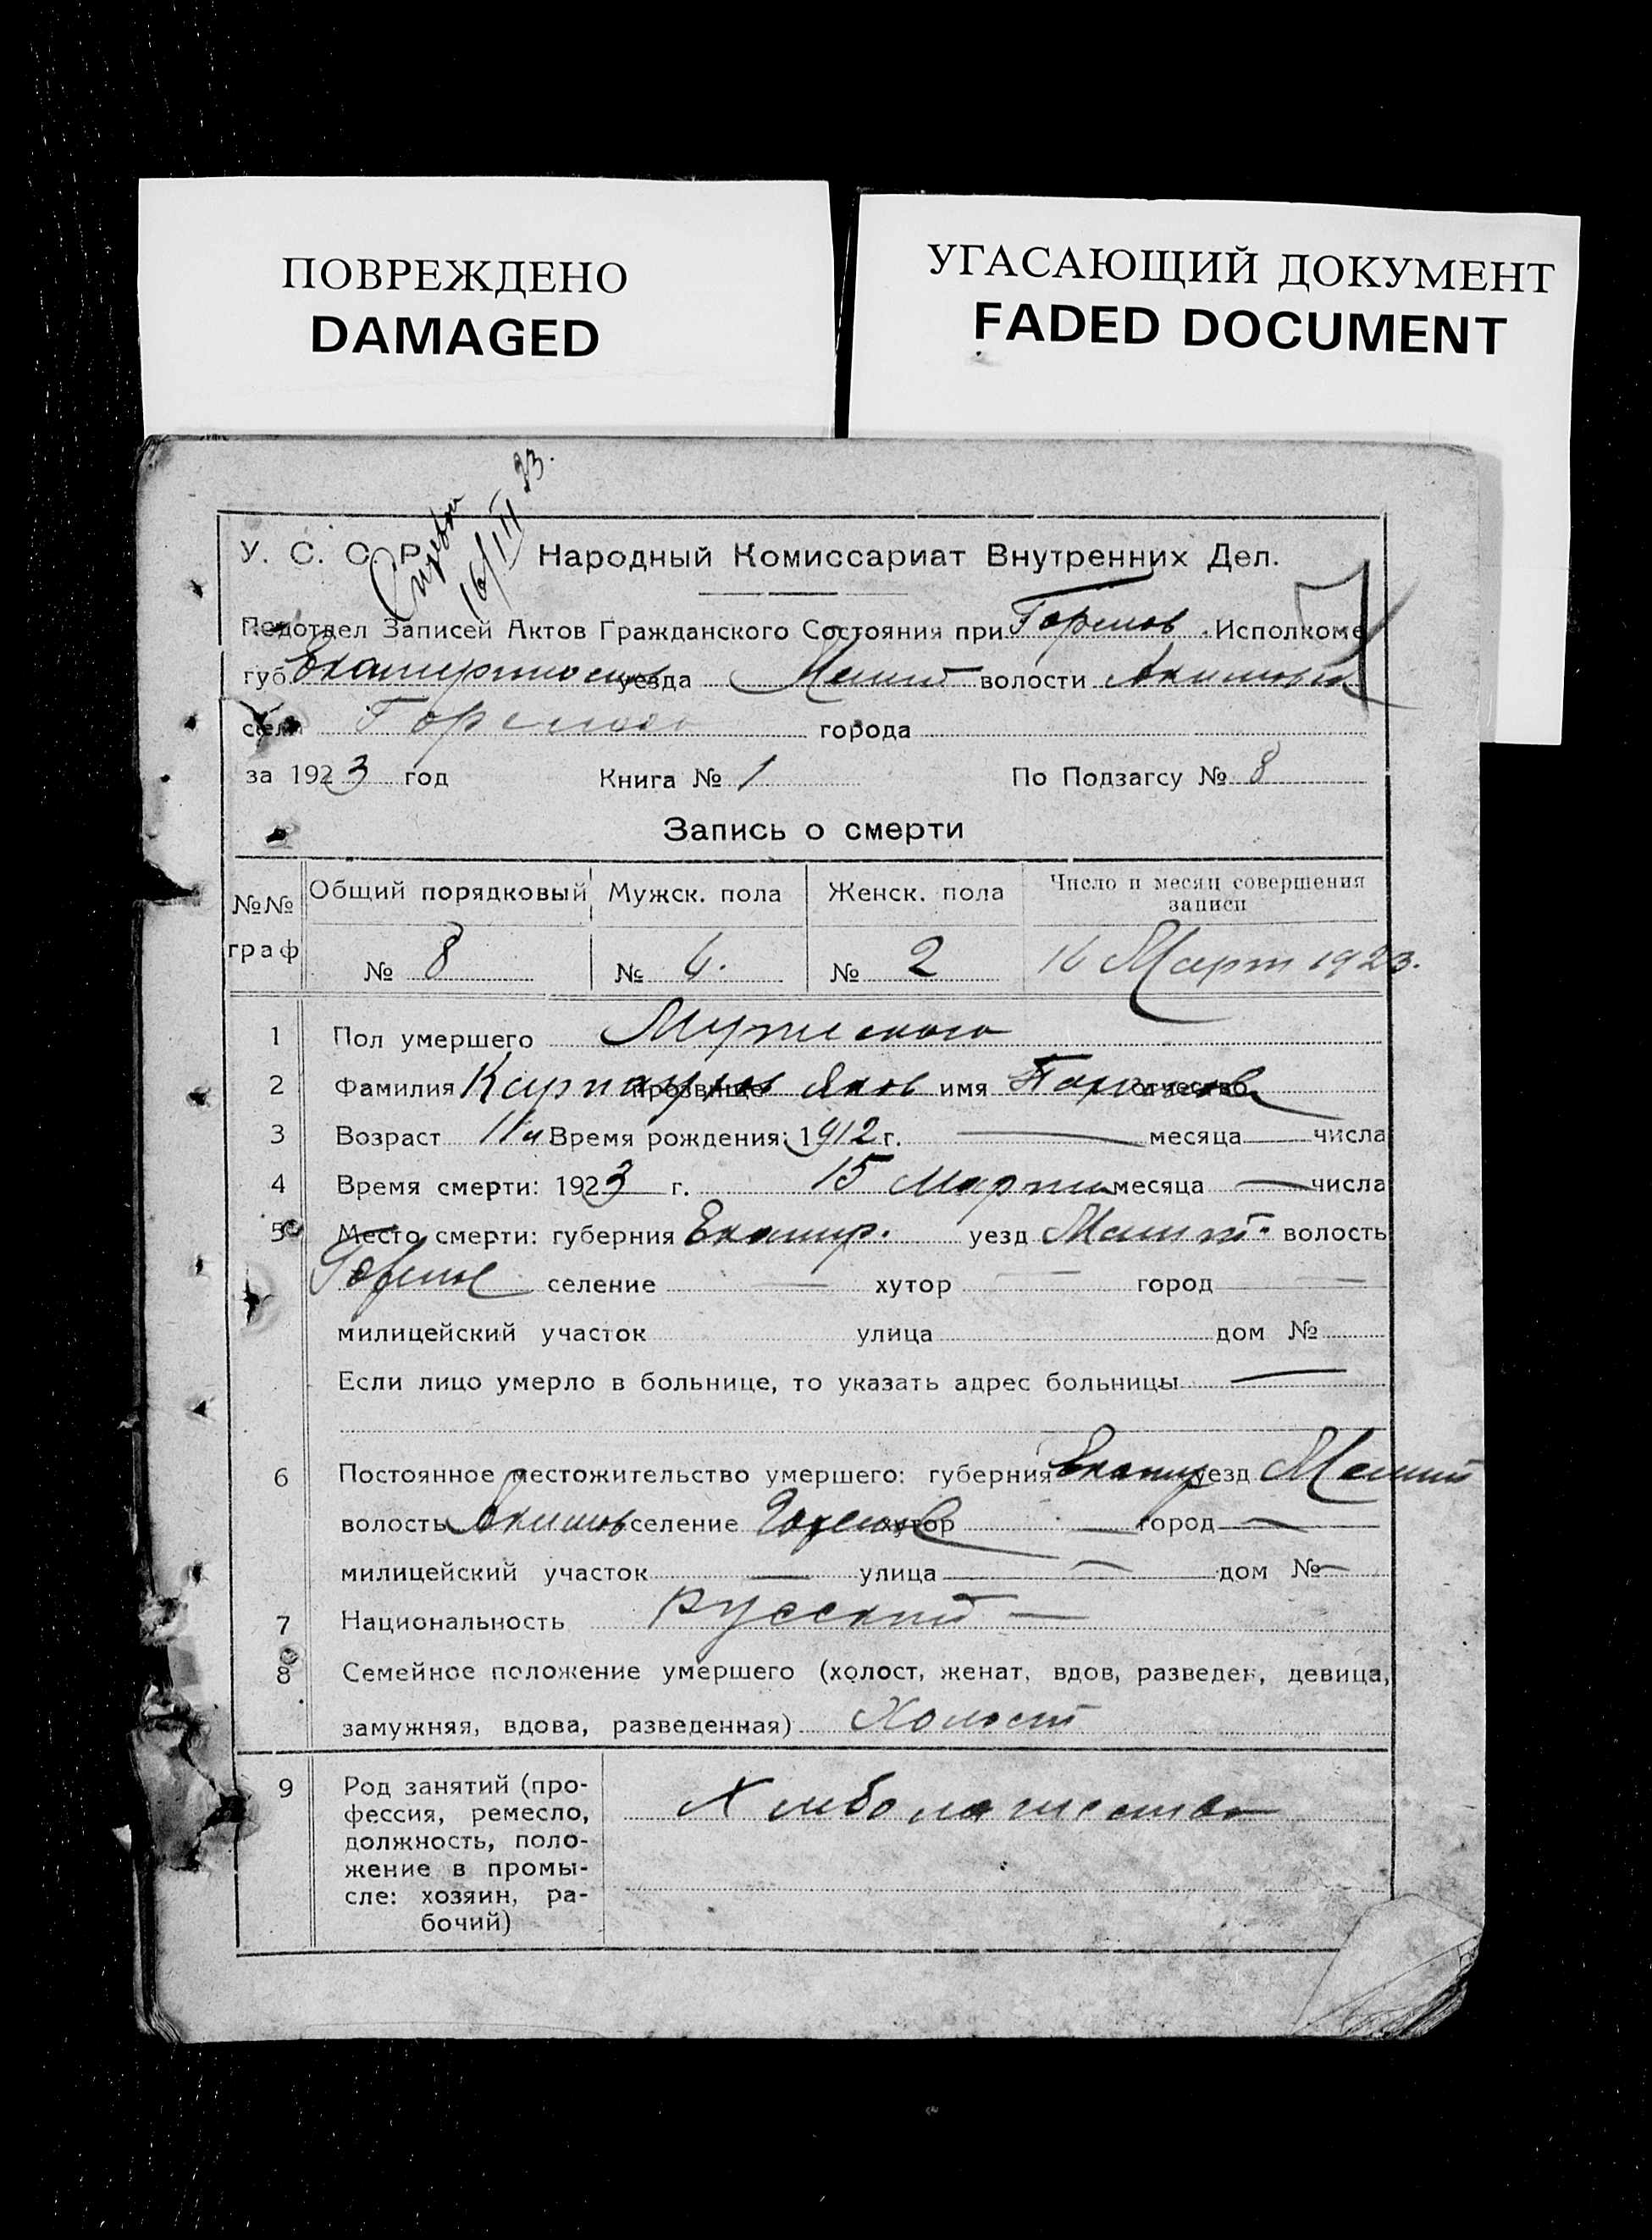 ПОВРЕЖДЕНО
DAMAGED
УГАСАЮЩИЙ ДОКУМЕНТ
FADED DOCUMENT
16/III 23.
У. С. С. Р. Народный Комиссариат Внутренних Дел.
Подотдел Записей Актов Гражданского Состояния при Исполкоме
губ. уезда Мелит волости
села города
за 1923 год Книга № 1 По Подзагсу № 8
Запись о смерти
№№ граф Общий порядковый Мужск. пола Женск. пола Число и месяц совершения записи
№ 8 № 6. № 2 16 Март 1923.
1 Пол умершего Мужского
2 Фамилия прозвище Яков имя отчество
3 Возраст 11 Время рождения: 1912 г. — месяца — числа
4 Время смерти: 1923 г. 15 Марта месяца — числа
5 Место смерти: губерния Екатер. уезд Мелит. волость
селение — хутор — город —
милицейский участок улица дом №
Если лицо умерло в больнице, то указать адрес больницы —
6 Постоянное местожительство умершего: губерния Екатер уезд Мелит
волость Акимов селение хутор — город —
милицейский участок — улица — дом № —
7 Национальность русский —
8 Семейное положение умершего (холост, женат, вдов, разведен, девица,
замужняя, вдова, разведенная) Холост
9 Род занятий (про-
фессия, ремесло,
должность, поло-
жение в промы-
сле: хозяин, ра-
бочий)
Хлебопашество